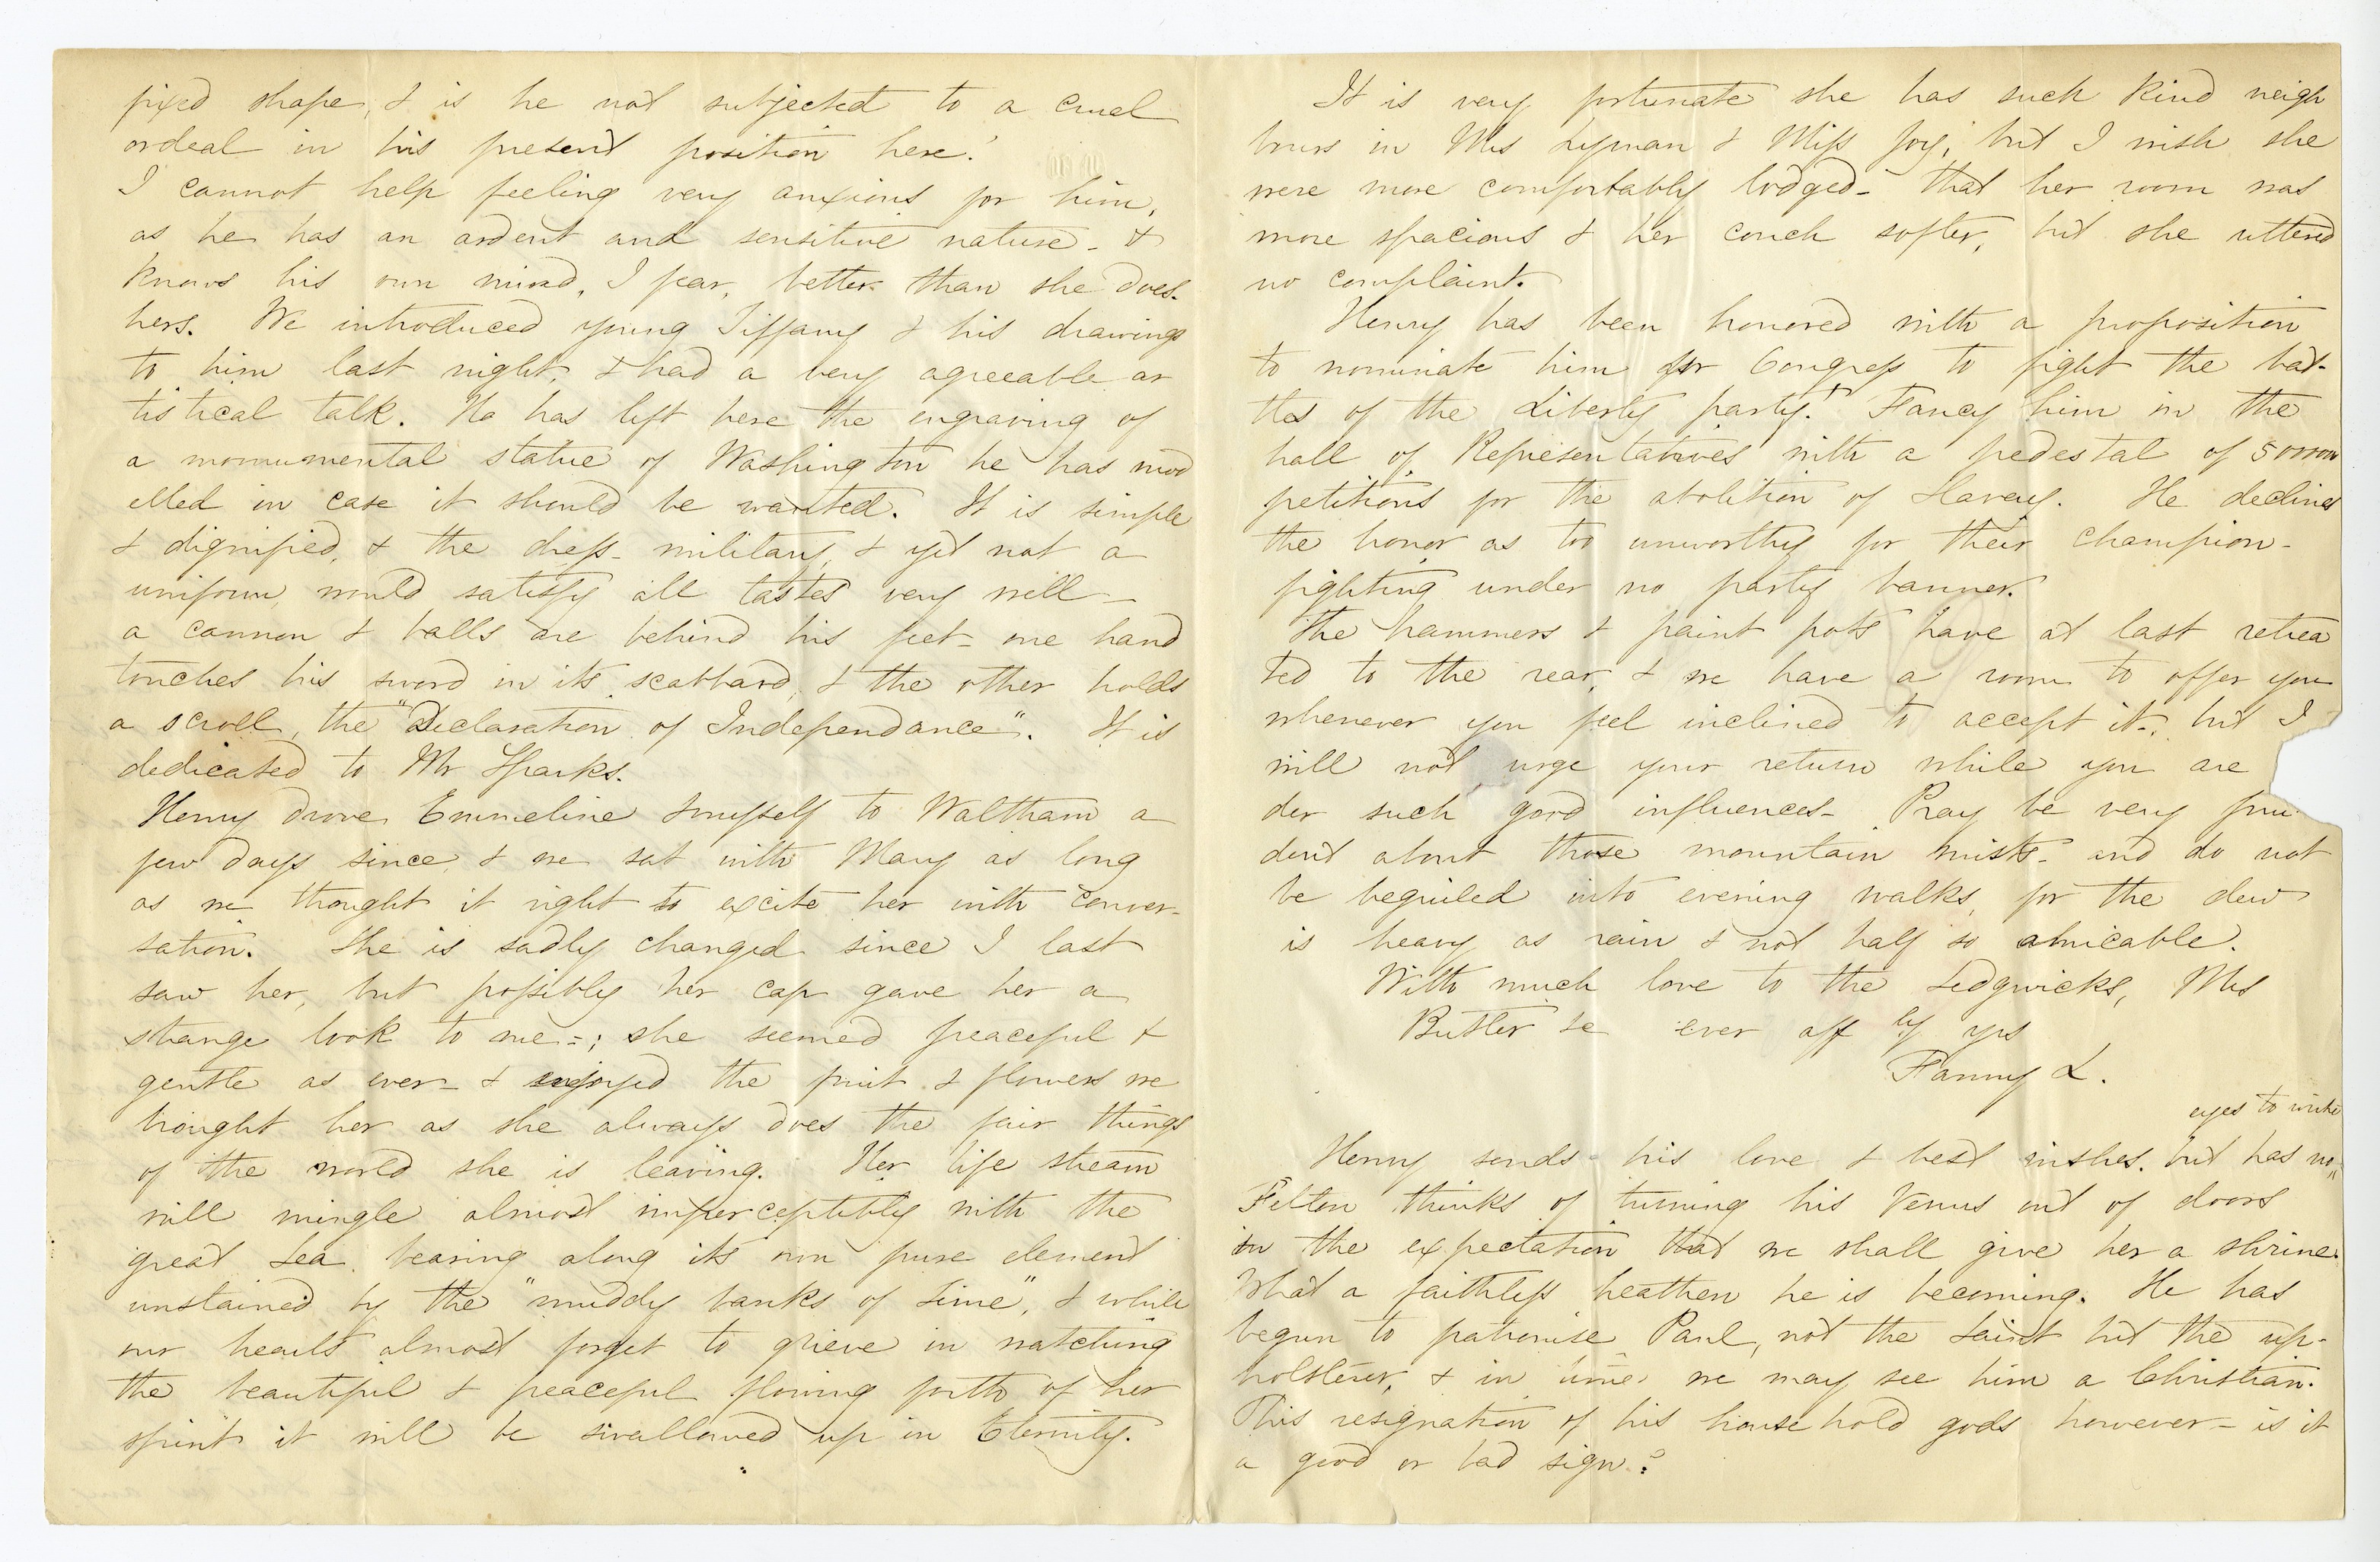 fixed shape, & is he not subjected to a cruel
ordeal in his present position here!
I cannot help feeling very anxious for him,
as he has an ardent and sensitive nature - &
knows his own mind, I fear, better than she does
hers. We introduced young Tiffany & his drawings
to him last night, & had a very agreeable ar
tistical talk. He has left here the engraving of
a monumental statue of Washington he has mod
elled in case it should be wanted. It is simple
& dignified, & the dress - military, & yet not a
uniform, would satisfy all tastes very well -
a cannon & balls are behind his feet - one hand
touches his sword in its scabbard, & the other holds
a scroll, the "Declaration of Independance". It is
dedicated to Mr Sparks.
Henry drove Emmeline & myself to Waltham a
few days since & we sat with Mary as long
as we thought it right to excite her with conver-
sation. She is sadly changed since I last
saw her, but possibly her cap gave her a
strange look to me -; she seemed peaceful &
gentle as ever - & enjoyed the fruit & flowers we
brought her as she always does the fair things
of the world she is leaving. Her life stream
will mingle almost imperceptibly with the
great Sea bearing along its own pure element
unstained by the "muddy banks of time", & while
our hearts almost forget to grieve in watching
the beautiful & peaceful flowing forth of her
spirit it will be swallowed up in Eternity.
It is very fortunate she has such kind neigh
bours in Mrs Lyman & Miss Joy, but I wish she
were more comfortably lodged - that her room was
more spacious & her couch softer, but she uttered
no complaint.
Henry has been honored with a proposition
to nominate him for Congress to fight the bat-
tles of the Liberty party! Fancy him in the
hall of Representatives with a pedestal of
petitions for the abolition of Slavery. He declines
the honor as too unworthy for their champion -
fighting under no party banner.
The hammers & paint pots have at last retrea
ted to the rear, & we have a room to offer you
whenever you feel inclined to accept it -, but I
will not urge your return while you are
der such good influences - Pray be very pru
dent about those mountain mists - and do not
be beguiled into evening walks, for the dew
is heavy as rain & not half so amicable.
With much love to the Sedgwicks, Mrs
Butler &c ever affly yrs
Fanny L.
eyes to write
Henry sends his love & best wishes. but has no
Felton thinks of turning his Venus out of doors
in the expectation that we shall give her a shrine.
What a faithless heathen he is becoming. He has
begun to patronise Paul, not the Saint but the up-
holsterer, & in time we may see him a Christian.
This resignation of his household gods however - is it
a good or bad sign?